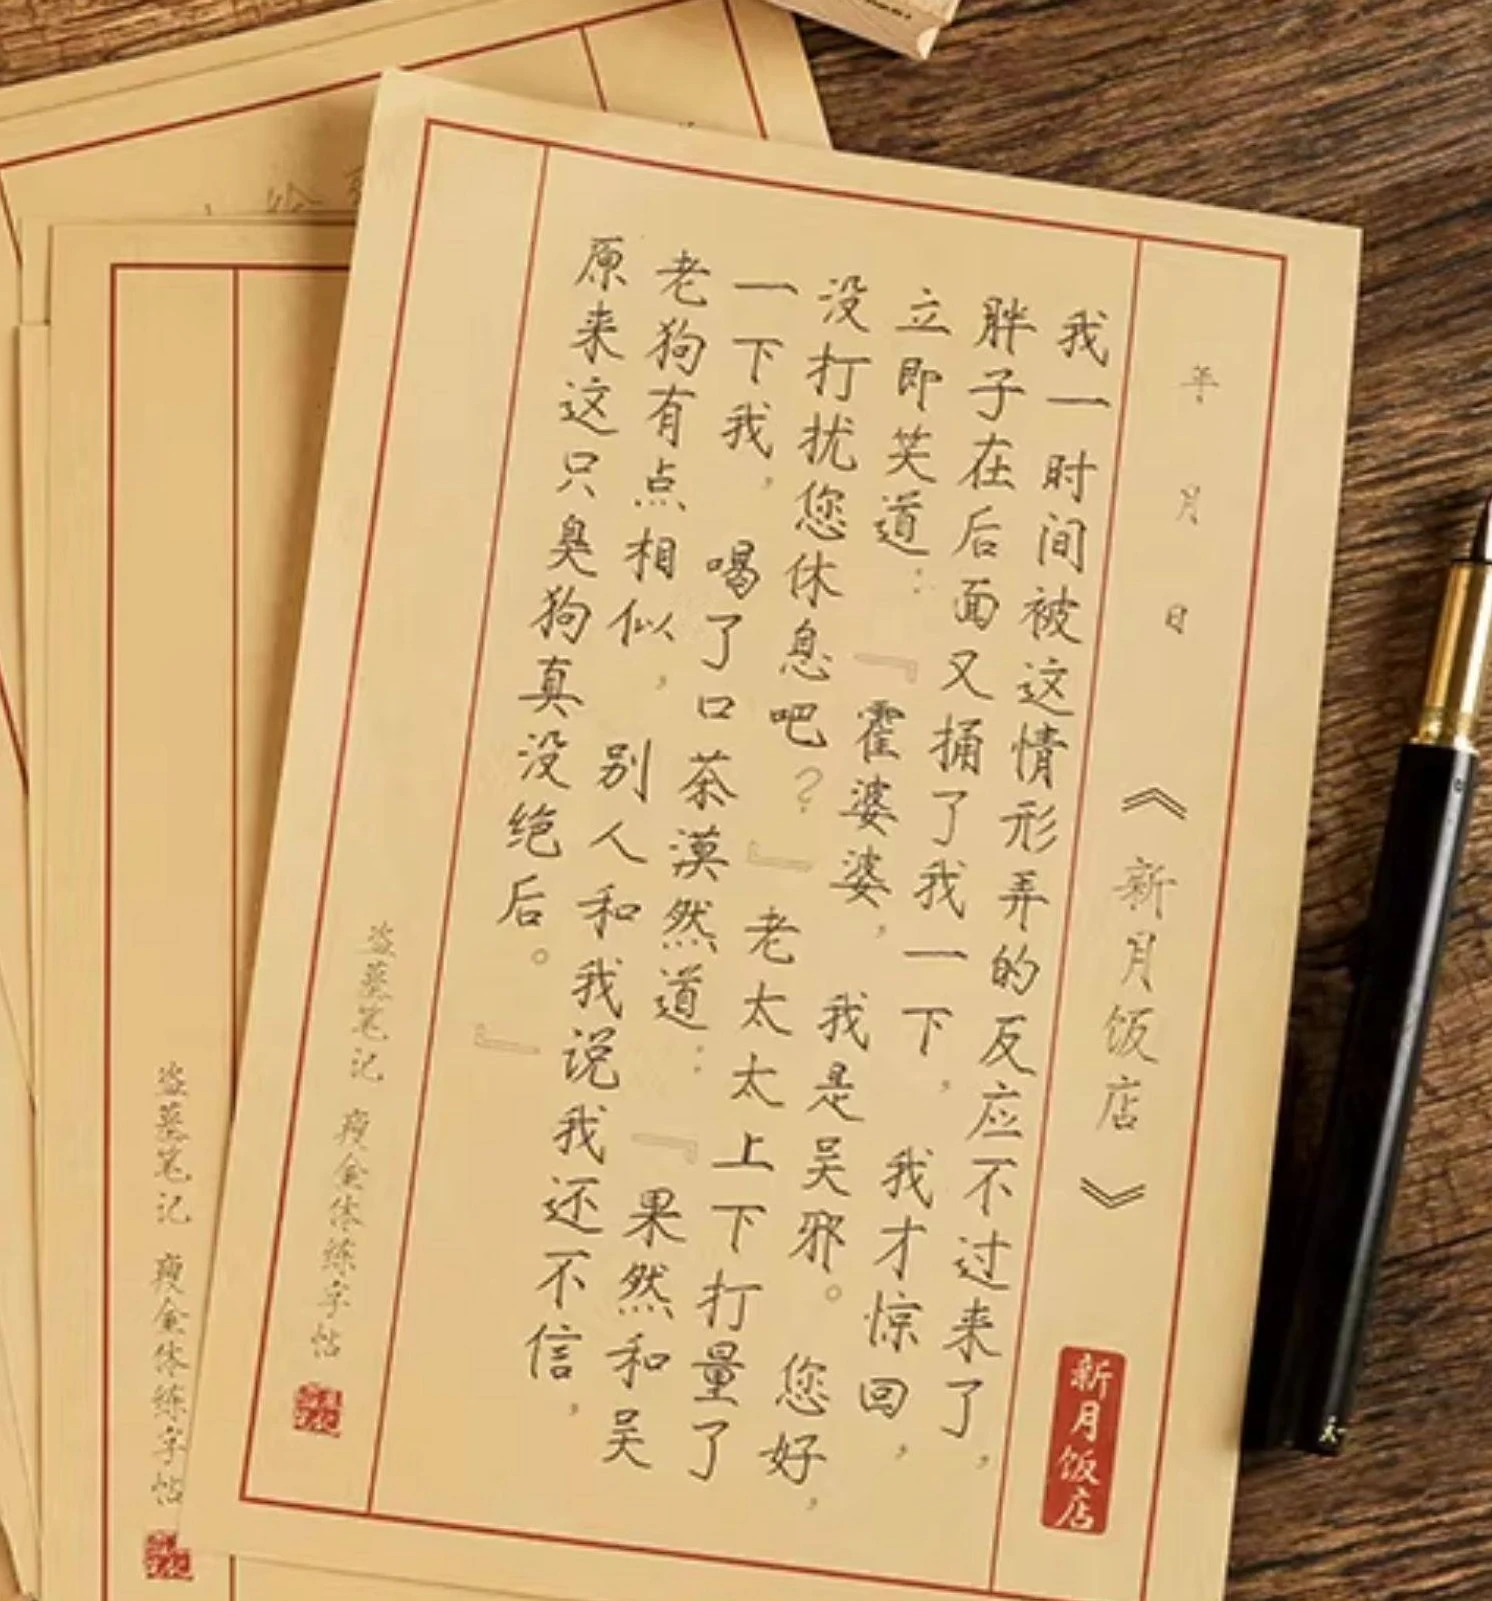 年 月 日 《新月饭店》
新月饭店
我一时间被这情形弄的反应不过来了，
胖子在后面又捅了我一下，我才惊回，
立即笑道：『霍婆婆，我是吴邪。您好，
没打扰您休息吧？』老太太上下打量了
一下我，喝了口茶漠然道：『果然和吴
老狗有点相似，别人和我说我还不信，
原来这只臭狗真没绝后。』
盗墓笔记 瘦金体练字帖
盗墓笔记 瘦金体练字帖